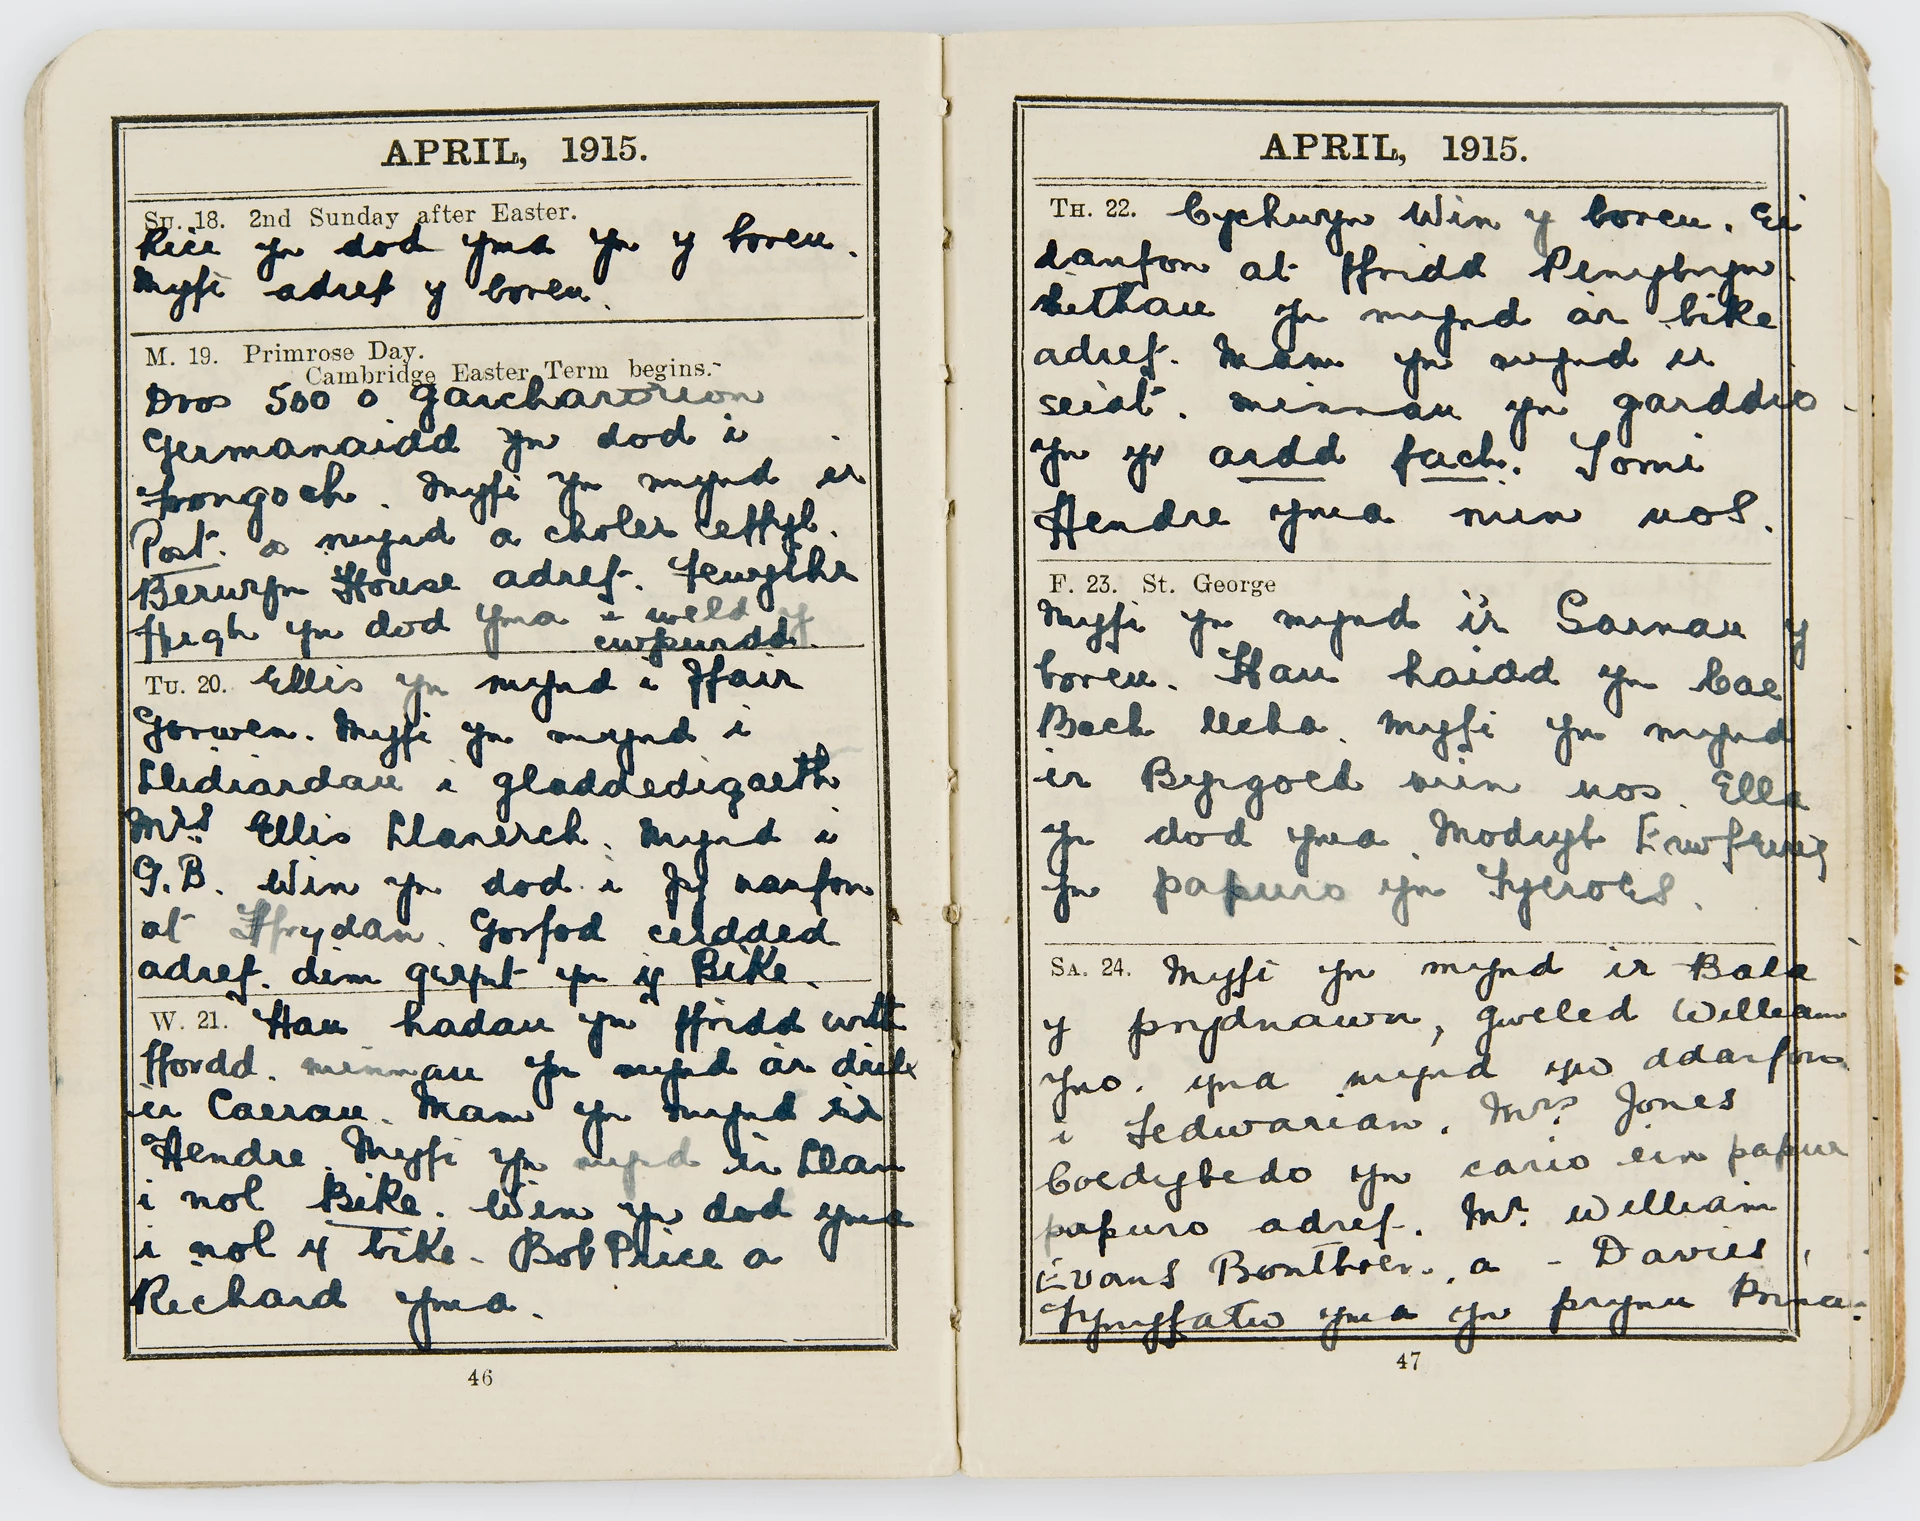 APRIL, 1915.
SU. 18. 2nd Sunday after Easter.
Rice yn dod yma yn y boreu.
Myfi adref y boreu.
M. 19. Primrose Day.
Cambridge Easter Term begins.
Dros 500 o garcharorion
Germanaidd yn dod i
frongoch. Myfi yn mynd ir
Post. a mynd a choler ceffyl.
Berwyn House adref. Fewythr
Hugh yn dod yma i weld y
cwpwrdd.
TU. 20. Ellis yn mynd i Ffair
Gorwen. Myfi yn mynd i
Llidiardau i gladdedigaeth
Mrs Ellis Llanerch. Mynd i
G.B. Win yn dod i fy nanfon
at Ffrydan. Gorfod cerdded
adref. dim gwynt yn y Bike.
W. 21. Hau hadau yn ffridd wrth
ffordd. minnau yn mynd ar
ir Caerau. Mam yn mynd i'r
Hendre. Myfi yn mynd ir Llan
i nol Bike. Win yn dod yma
i nol y bike. Bob Price a
Richard yma.
46
APRIL, 1915.
TH. 22. Cychwyn Win y boreu. Ei
danfon at ffridd Penybryn.
hithau yn mynd ar bike
adref. Mam yn mynd ir
seiat. minnau yn garddio
yn yr ardd fach. Tomi
Hendre yma min nos.
F. 23. St. George
Myfi yn mynd i'r Sarnau y
boreu. Hau haidd yn Cae
Bach Ucha. Myfi yn mynd
ir Byrgoed min nos. Ella
yn dod yma. Modryb Erwfeurig
yn papuro yn Tycroes.
SA. 24. Myfi yn mynd ir Bala
y prydnawn, gweled William
yno. yna mynd yw ddanfon
i Fedwarian. Mrs. Jones
Coedybedo yn cario ein papur
papuro adref. Mr. William
Evans a - Davies,
yma yn prynu
47